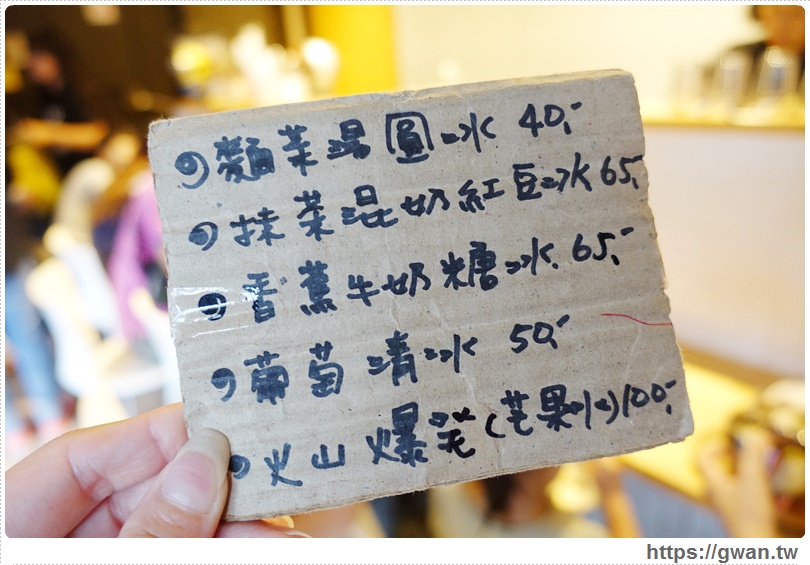 麵茶湯圓冰 40,-
抹茶混奶紅豆冰 65,-
香蕉牛奶糖冰 65,-
葡萄清冰 50,-
火山爆笑(芒果冰)100,-
https://gwan.tw